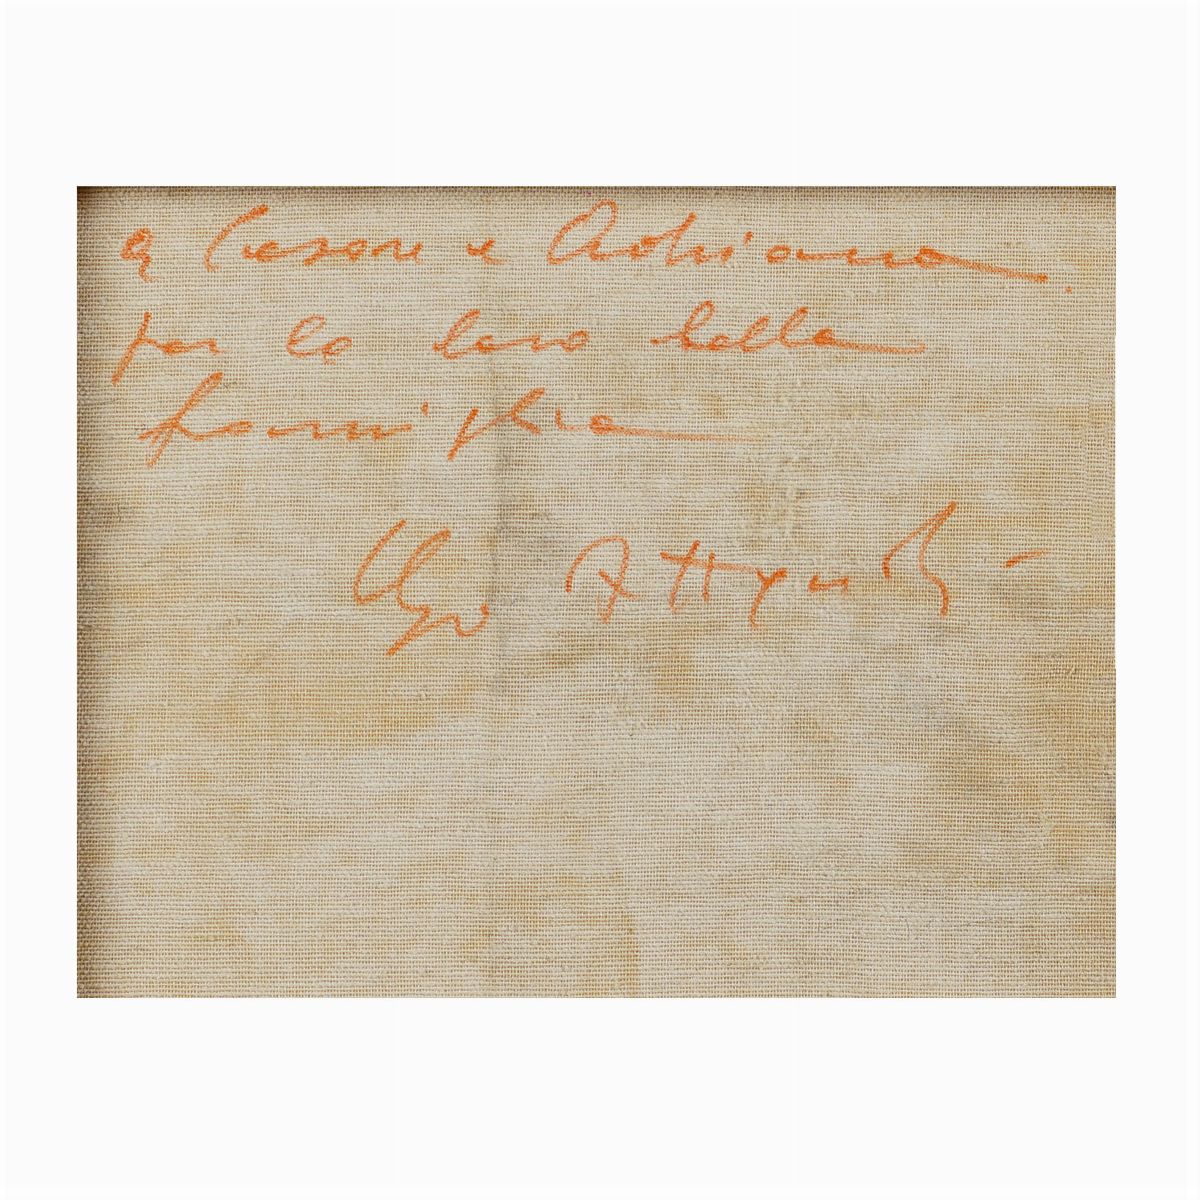 a Cesare e Adriana.
per la loro bella
famiglia
Ugo Attardi